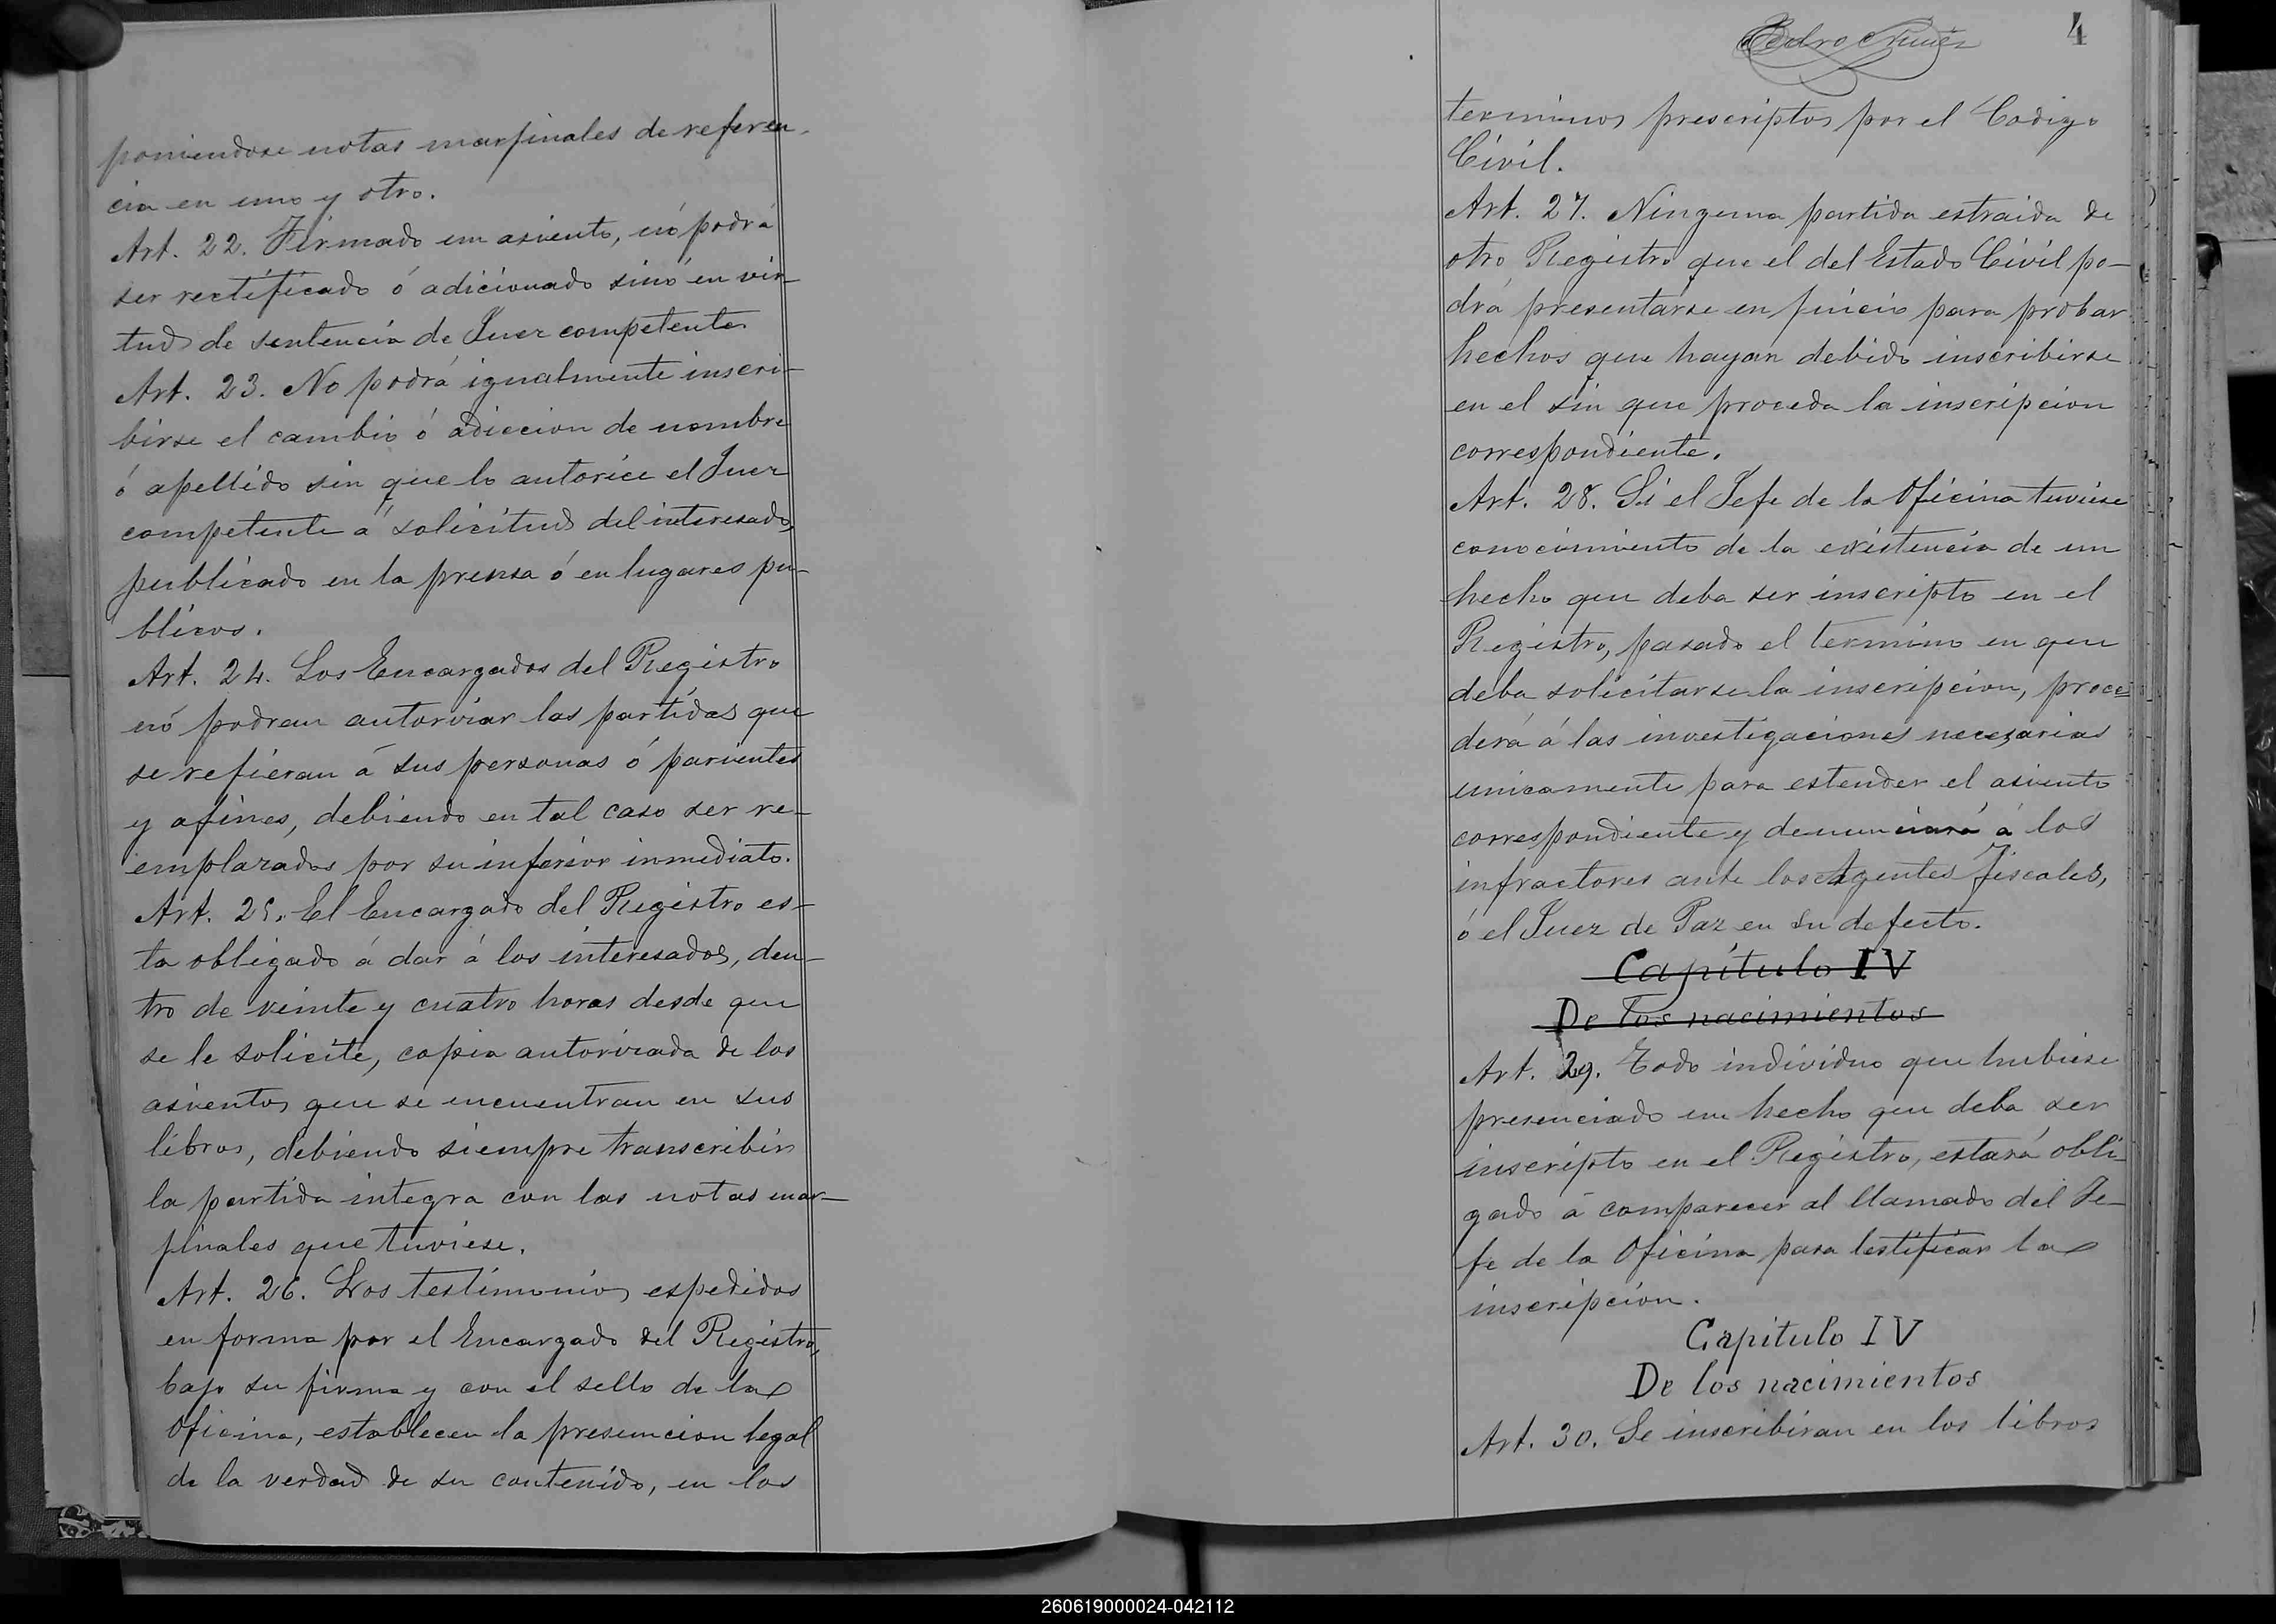 poniendose notas marjinales de referen-
cia en uno y otro.
Art. 22. Firmado un asiento, nó podrá
ser rectificado ó adicionado sinó en vir-
tud de sentencia de Juez competente
Art. 23. No podrá igualmente inscri-
birse el cambio ó adiccion de nombre
ó apellido sin que lo autorice el Juez
competente á solicitud del interesado,
publicado en la prensa ó en lugares pu-
blicos.
Art. 24. Los Encargados del Registro
nó podran autorizar las partidas que
se refieran á sus personas ó parientes
y afines, debiendo en tal caso ser re-
emplazados por su inferior inmediato.
Art. 25. El Encargado del Registro es-
ta obligado á dar á los interesados, den-
tro de veinte y cuatro horas desde que
se le solicite, copia autorizada de los
asientos que se encuentran en sus
libros, debiendo siempre transcribir
la partida integra con las notas mar-
jinales que tuviese.
Art. 26. Los testimonios espedidos
en forma por el Encargado del Registro,
bajo su firma y con el sello de la
Oficina, establecen la presuncion legal
de la verdad de su contenido, en los
Pedro Nuñez
4
terminos prescriptos por el Codigo
Civil.
Art. 27. Ninguna partida estraida de
otro Registro que el del Estado Civil po-
drá presentarse en juicio para probar
hechos que hayan debido inscribirse
en el sin que proceda la inscripcion
correspondiente.
Art. 28. Si el Jefe de la Oficina tuviese
conocimiento de la existencia de un
hecho que deba ser inscripto en el
Registro, pasado el termino en que
deba solicitarse la inscripcion, proce-
derá á las investigaciones necesarias
unicamente para estender el asiento
correspondiente y denunciará á los
infractores ante los Agentes Fiscales,
ó el Juez de Paz en su defecto.
Capítulo IV
De los nacimientos
Art. 29. Todo individuo que hubiese
presenciado un hecho que deba ser
inscripto en el Registro, estará obli-
gado á comparecer al llamado del Je-
fe de la Oficina para testificar la
inscripcion.
Capitulo IV
De los nacimientos
Art. 30. Se inscribiran en los libros
260619000024-042112